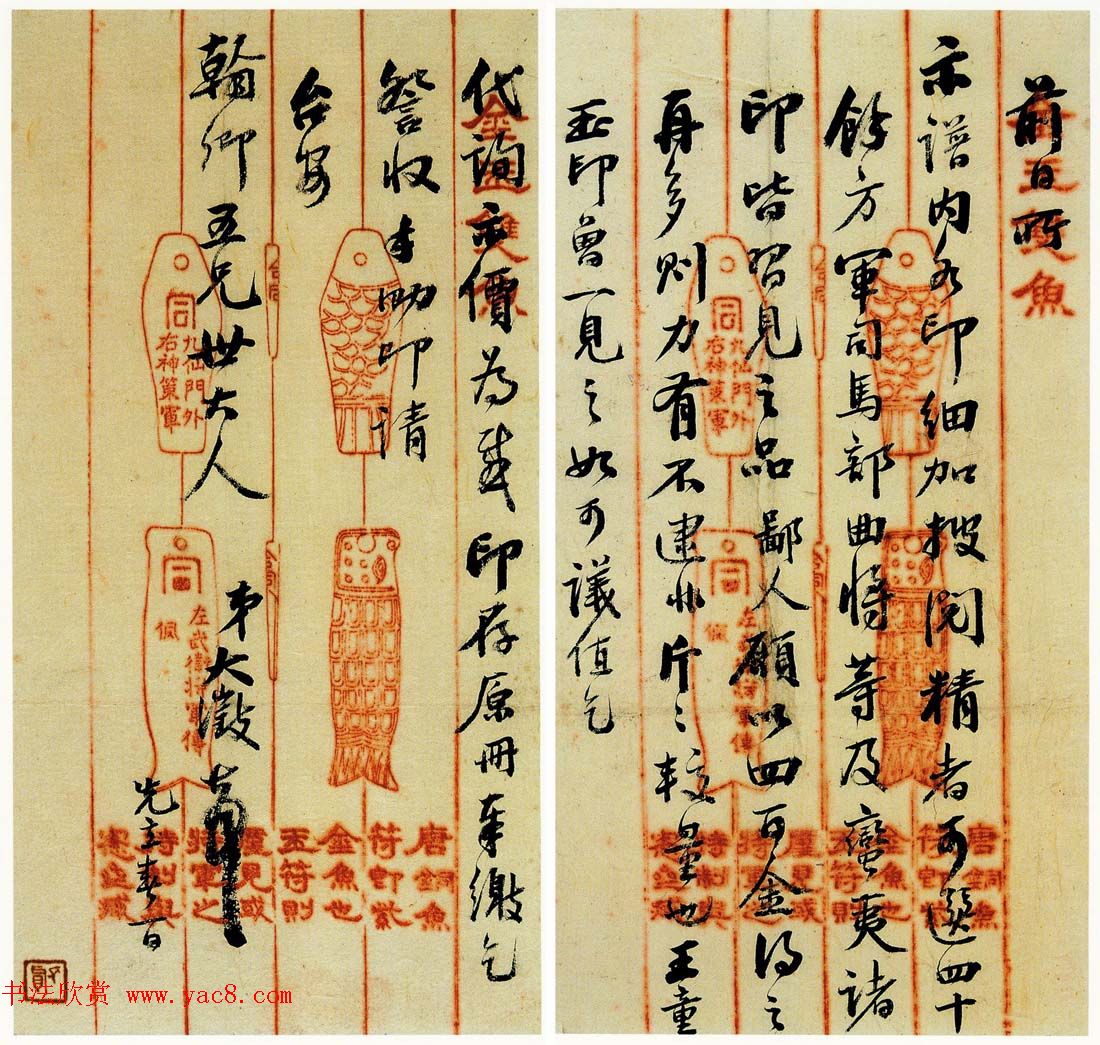 前日所
示譜内各印細加搜閱精者可選四十
餘方軍司馬部曲將等及蠻夷諸
印皆習見之品鄙人願以四百金得之
再多則力有不逮非斤斤較量也王童
玉印曾一見之如可議值乞
代詢示價為感印存原冊奉繳乞
詧收手泐即請
台安
翰卿五兄世大人
弟大澂頓首
先立春一日
金玉雙魚
同
九仙門外
右神策軍
同
左武衛將軍傳
佩
合同
唐銅魚
符即紫
金魚也
玉符則
僅見或
書法欣赏 www.yac8.com